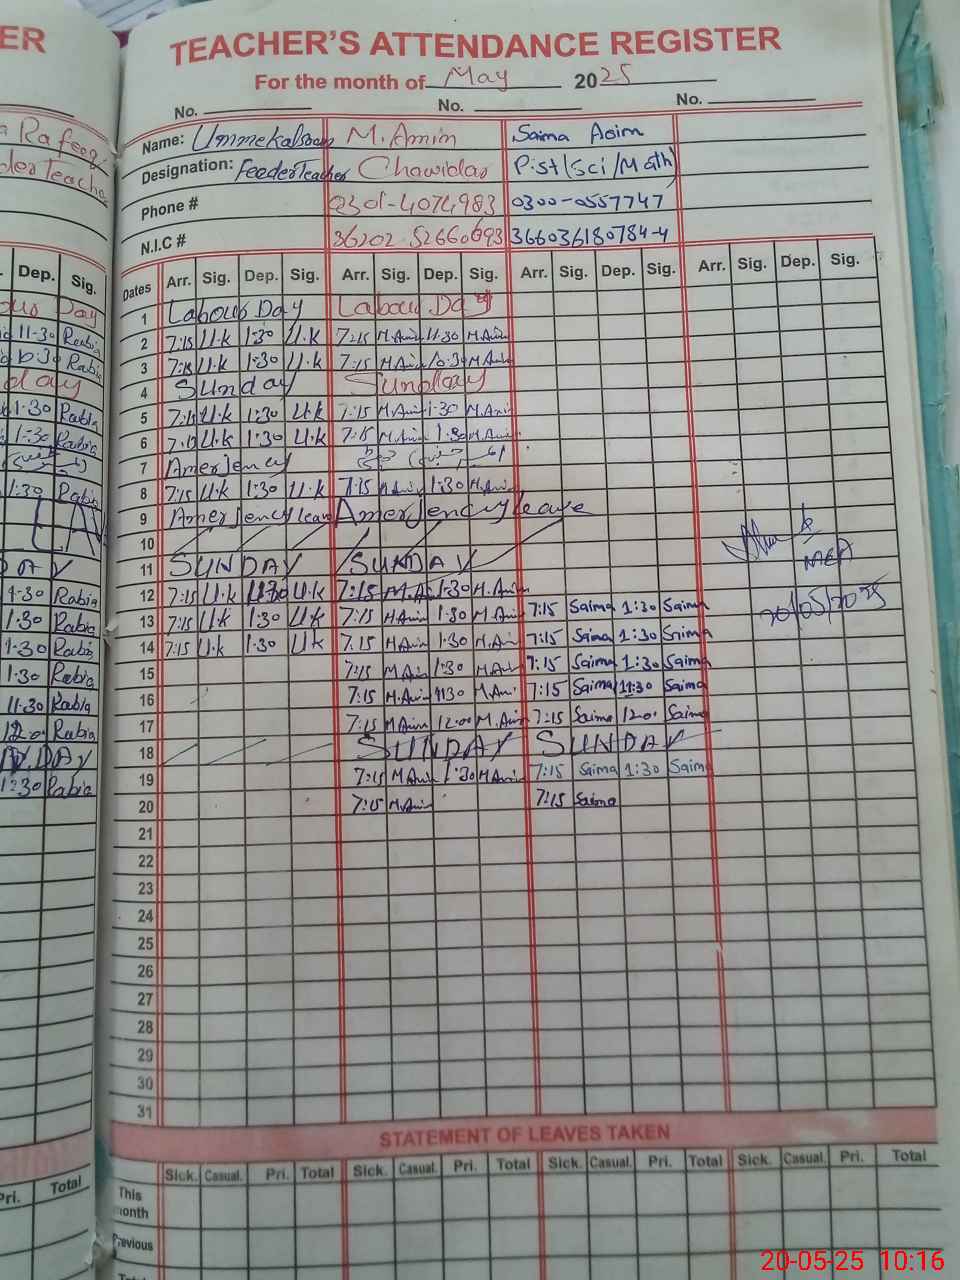 ER
TEACHER'S ATTENDANCE REGISTER
For the month of May 2025
No. No. No.
a Rafeeq Name: Ummekalsoom M.Amim Saima Asim
der Teacher Designation: Feeder Teacher Chowidar P.ist(Sci/Math)
Phone # 0301-4074983 0300-0557747
N.I.C # 36202.52660693 366036180784-4
Dep. Sig. Dates Arr. Sig. Dep. Sig. Arr. Sig. Dep. Sig. Arr. Sig. Dep. Sig. Arr. Sig. Dep. Sig.
our Day 1 Labour Day Labour Day
11-30 Rabia 2 7:15 U.k 1:30 U.k 7:15 M.Amin 11:30 M.Amin
10:30 Rabia 3 7:15 U.k 1:30 U.k 7:15 M.Amin 10:30 M.Amin
day 4 Sunday Sunday
1:30 Rabia 5 7:15 U.k 1:30 U.k 7:15 M.Amin 1:30 M.Amin
1:30 Rabia 6 7:15 U.k 1:30 U.k 7:15 M.Amin 1:30 M.Amin
7 Amerjency
1:30 Rabia 8 7:15 U.k 1:30 U.k 7:15 M.Amin 1:30 M.Amin
9 Amerjency leave Amerjency leave
10
DAY 11 SUNDAY SUNDAY
1:30 Rabia 12 7:15 U.k 1:30 U.k 7:15 M.Amin 1:30 M.Amin
MEA
1:30 Rabia 13 7:15 U.k 1:30 U.k 7:15 M.Amin 1:30 M.Amin 7:15 Saima 1:30 Saima 20/05/2025
1:30 Rabia 14 7:15 U.k 1:30 U.k 7.15 M.Amin 1:30 M.Amin 7:15 Saima 1:30 Saima
1:30 Rabia 15 7:15 M.Amin 1:30 M.Amin 7:15 Saima 1:30 Saima
11:30 Rabia 16 7:15 M.Amin 11:30 M.Amin 7:15 Saima 11:30 Saima
12:00 Rabia 17 7:15 M.Amin 12:00 M.Amin 7:15 Saima 12:00 Saima
N.DAY 18 SUNDAY SUNDAY
1:30 Rabia 19 7:15 M.Amin 1:30 M.Amin 7:15 Saima 1:30 Saima
20 7:15 M.Amin 7:15 Saima
21
22
23
24
25
26
27
28
29
30
31
STATEMENT OF LEAVES TAKEN
Pri. Total Sick. Casual. Pri. Total Sick. Casual. Pri. Total Sick. Casual. Pri. Total Sick. Casual. Pri. Total
This
month
Previous
20-05-25 10:16